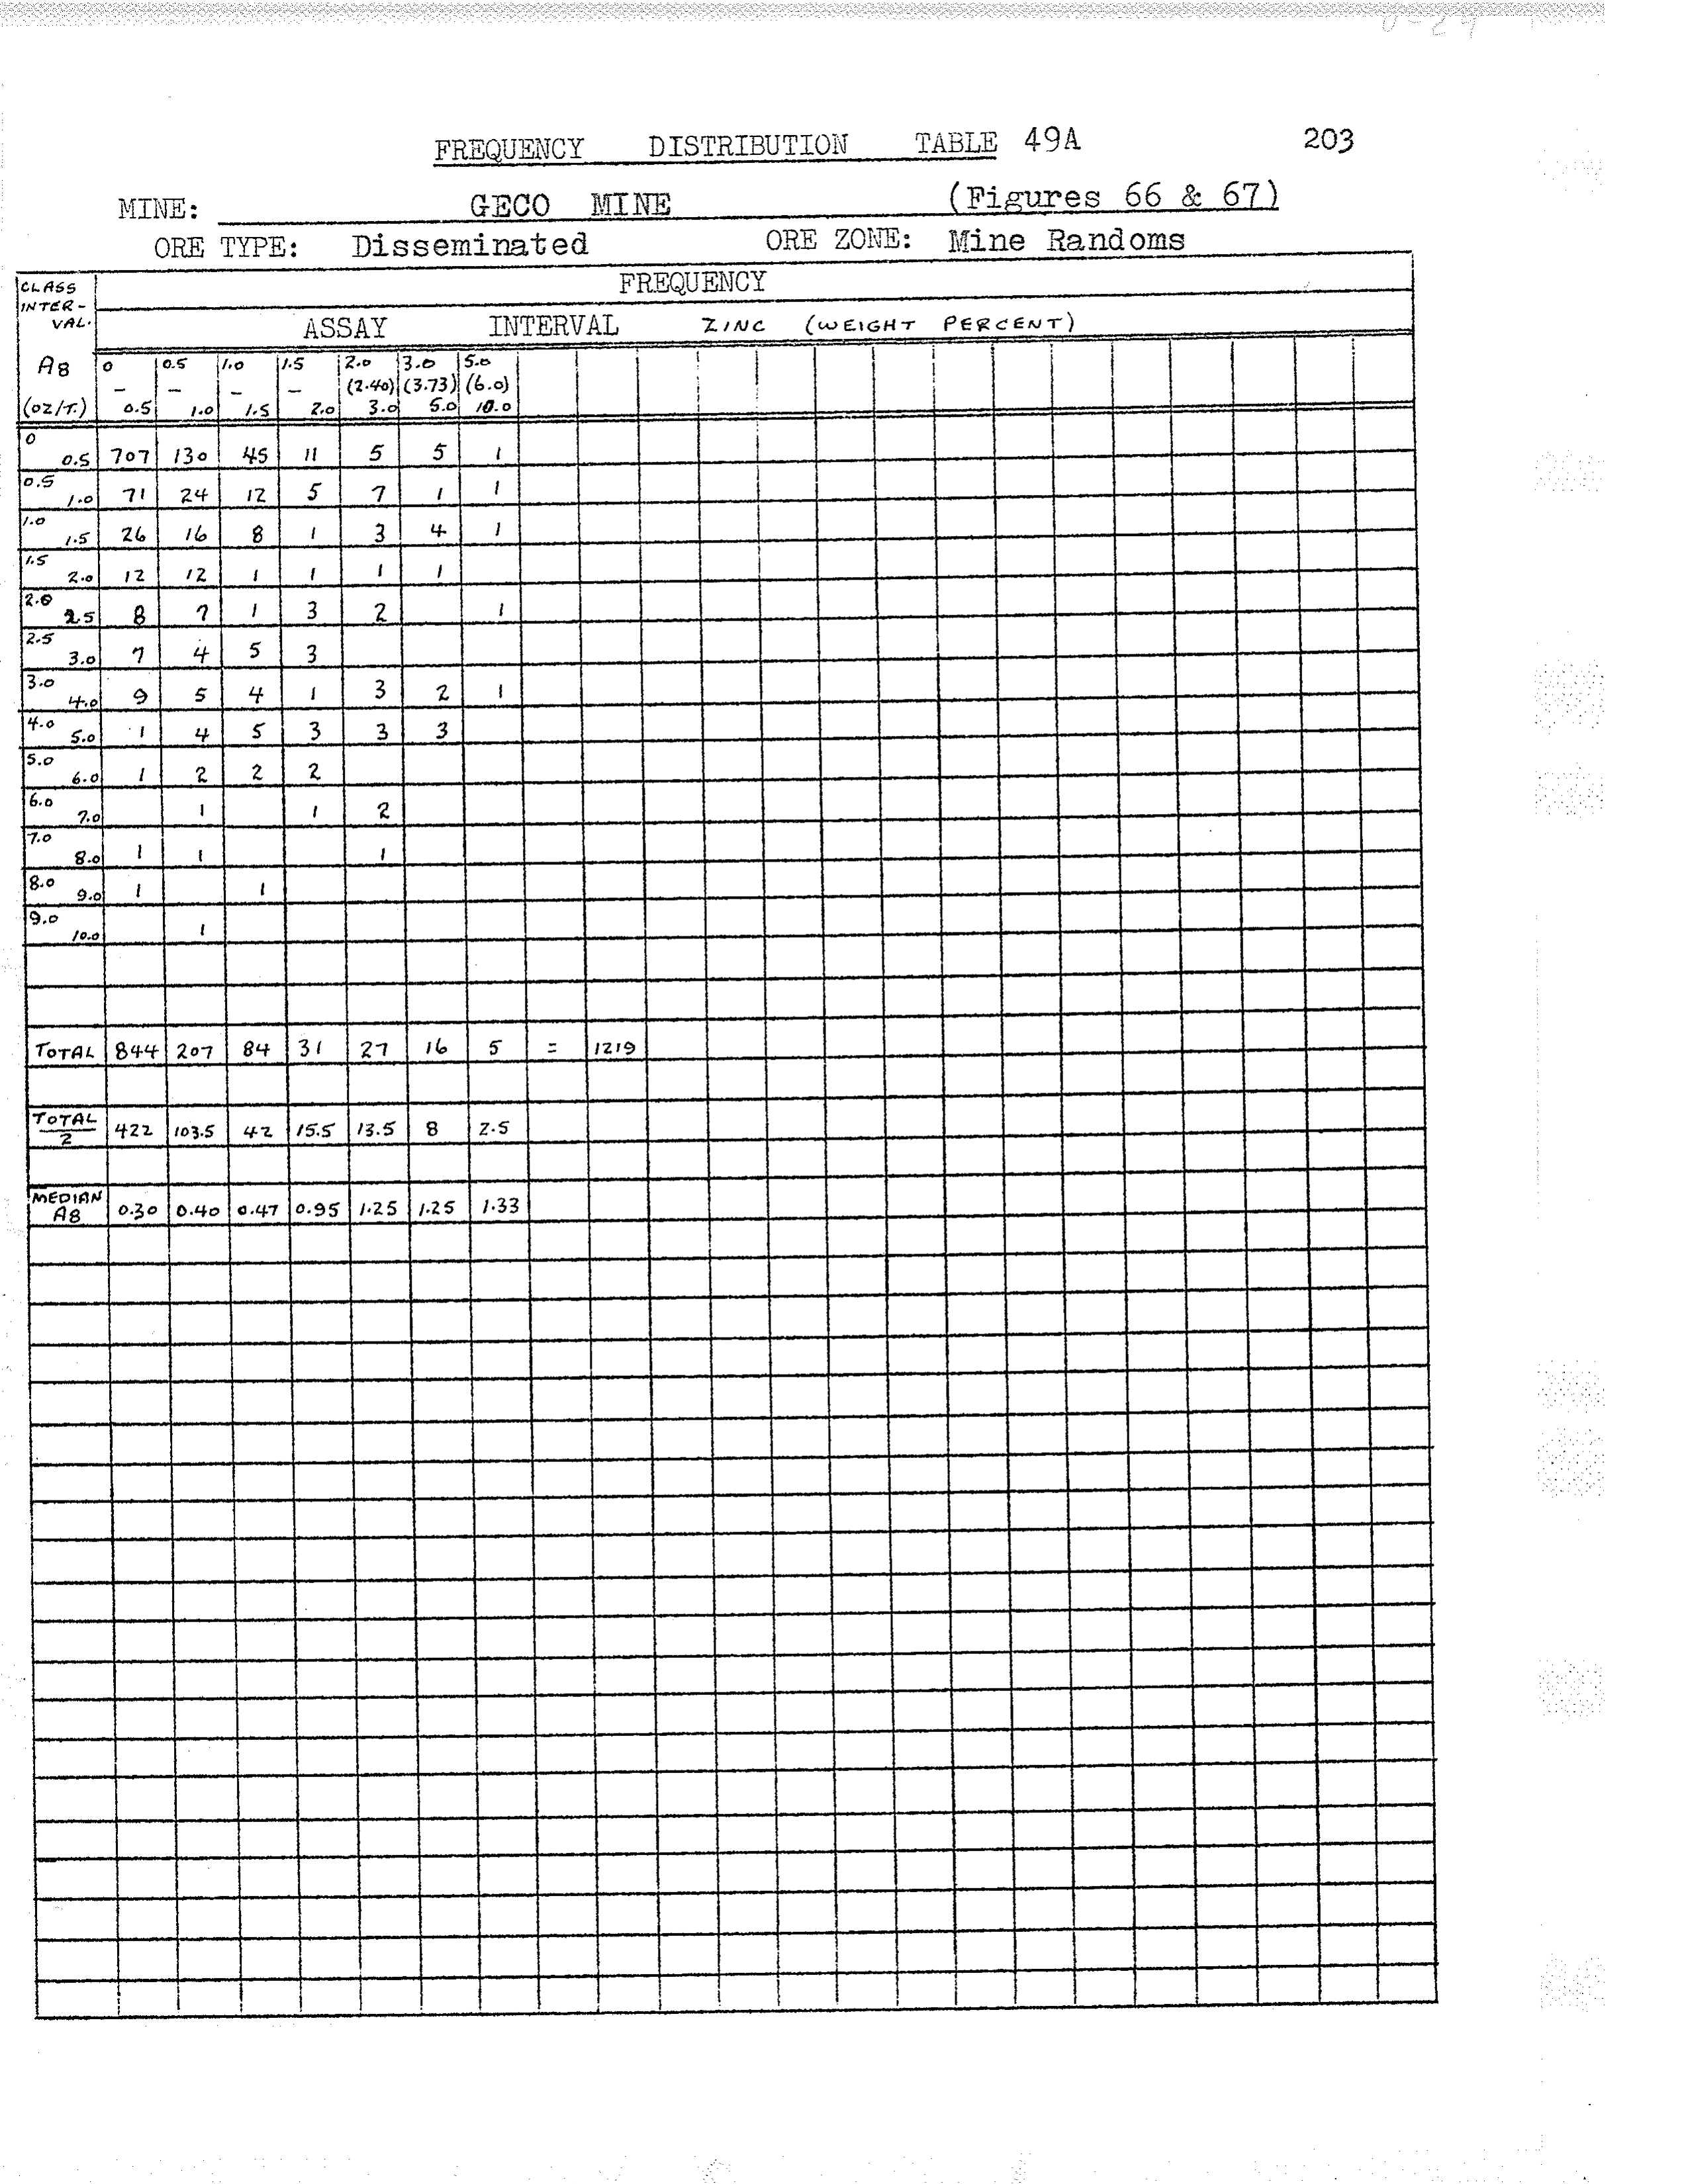 FREQUENCY DISTRIBUTION TABLE 49A 203
MINE: GECO MINE (Figures 66 & 67)
ORE TYPE: Disseminated ORE ZONE: Mine Randoms
CLASS INTER-VAL. FREQUENCY
ASSAY INTERVAL ZINC (WEIGHT PERCENT)
Ag 0 0.5 1.0 1.5 2.0 3.0 5.0
– – – – (2.40) (3.73) (6.0)
(OZ/T.) 0.5 1.0 1.5 2.0 3.0 5.0 10.0
0 0.5 707 130 45 11 5 5 1
0.5 1.0 71 24 12 5 7 1 1
1.0 1.5 26 16 8 1 3 4 1
1.5 2.0 12 12 1 1 1 1
2.0 2.5 8 7 1 3 2 1
2.5 3.0 7 4 5 3
3.0 4.0 9 5 4 1 3 2 1
4.0 5.0 1 4 5 3 3 3
5.0 6.0 1 2 2 2
6.0 7.0 1 1 2
7.0 8.0 1 1 1
8.0 9.0 1 1
9.0 10.0 1
TOTAL 844 207 84 31 27 16 5 = 1219
TOTAL
2 422 103.5 42 15.5 13.5 8 2.5
MEDIAN
Ag 0.30 0.40 0.47 0.95 1.25 1.25 1.33